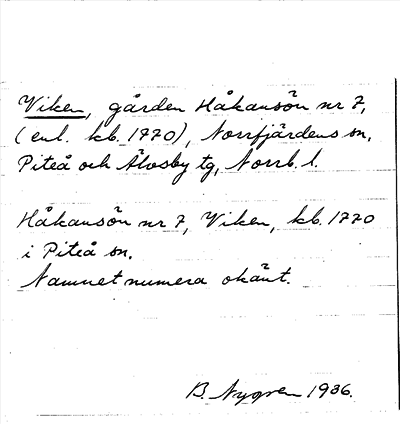 Viken, gården Håkansön nr 7,
(enl. kb. 1770), Norrfjärdens sn,
Piteå och Älvsby tg, Norrb. l.
Håkansön nr 7, Viken, kb. 1770
i Piteå sn.
Namnet numera okänt.
B. Nygren 1936.